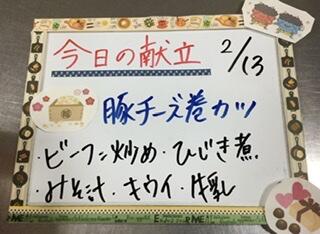 今日の献立 2/13
豚チーズ巻カツ
・ビーフン炒め・ひじき煮
・みそ汁・キウイ・牛乳